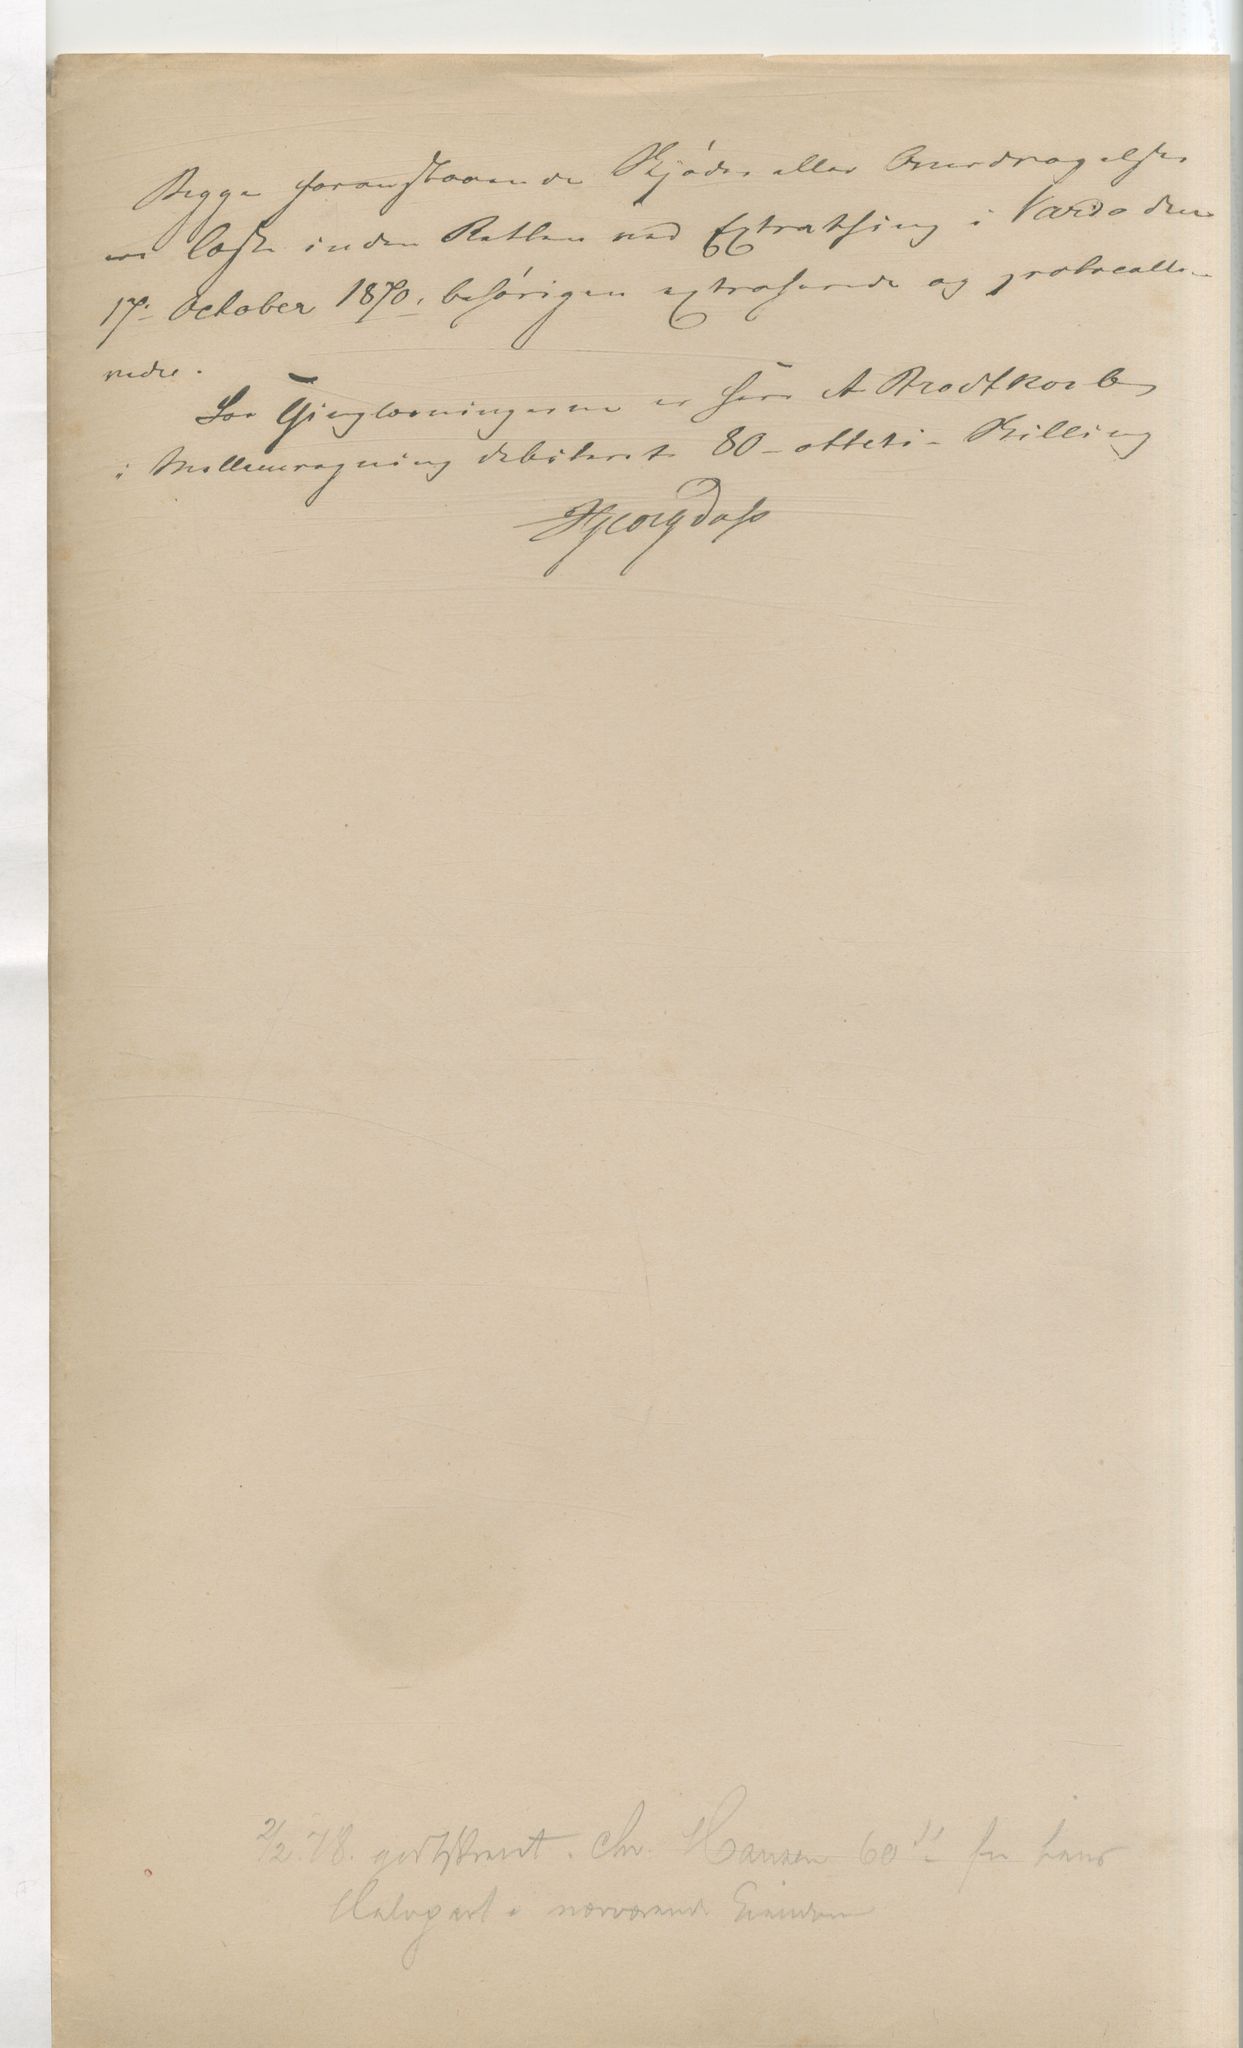 Begge foranstaaende Skjøder eller Overdragelser
ere læste inden Retten ved Extrathing i Vardø den
17. October 1870, behørigen extraherede og protocolle-
rede.
For Thinglæsningerne er Herr A Brodtkorb
i Mellemregning debiteret 80 - otteti - Skilling
2/2.78. godtskrevet Chr. Hansen 60 for hans
Halvpart i nærværende Eiendom